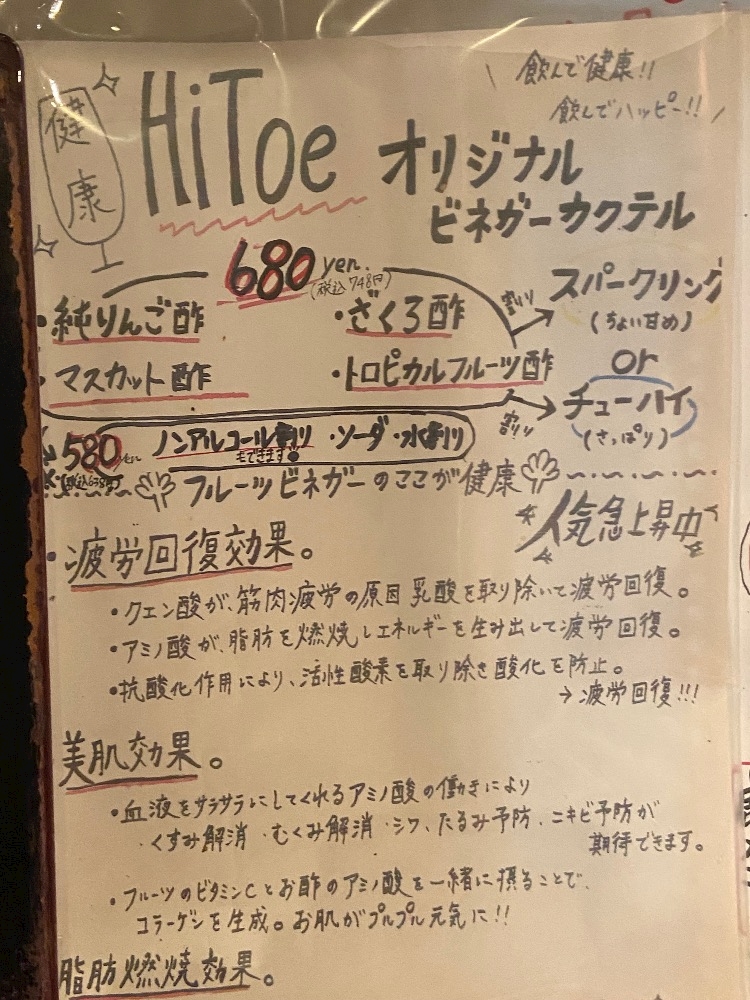 健康
飲んで健康!!
飲んでハッピー!!
HiToe オリジナル
ビネガーカクテル
680yen.
(税込748円)
・純りんご酢 ・ざくろ酢
・マスカット酢 ・トロピカルフルーツ酢
割り スパークリング
(ちょい甘め)
or
割り チューハイ
(さっぱり)
580yen ノンアルコール割り ・ソーダ・水割り
もできます
フルーツビネガーのここが健康
人気急上昇中
・疲労回復効果。
・クエン酸が、筋肉疲労の原因 乳酸を取り除いて疲労回復。
・アミノ酸が、脂肪を燃焼しエネルギーを生み出して疲労回復。
・抗酸化作用により、活性酸素を取り除き酸化を防止。
→疲労回復!!!
美肌効果。
・血液をサラサラにしてくれるアミノ酸の働きにより
・くすみ解消 ・むくみ解消 ・シワ、たるみ予防 ・ニキビ予防が
期待できます。
・フルーツのビタミンCとお酢のアミノ酸を一緒に摂ることで、
コラーゲンを生成。お肌がプルプル元気に!!
脂肪燃焼効果。